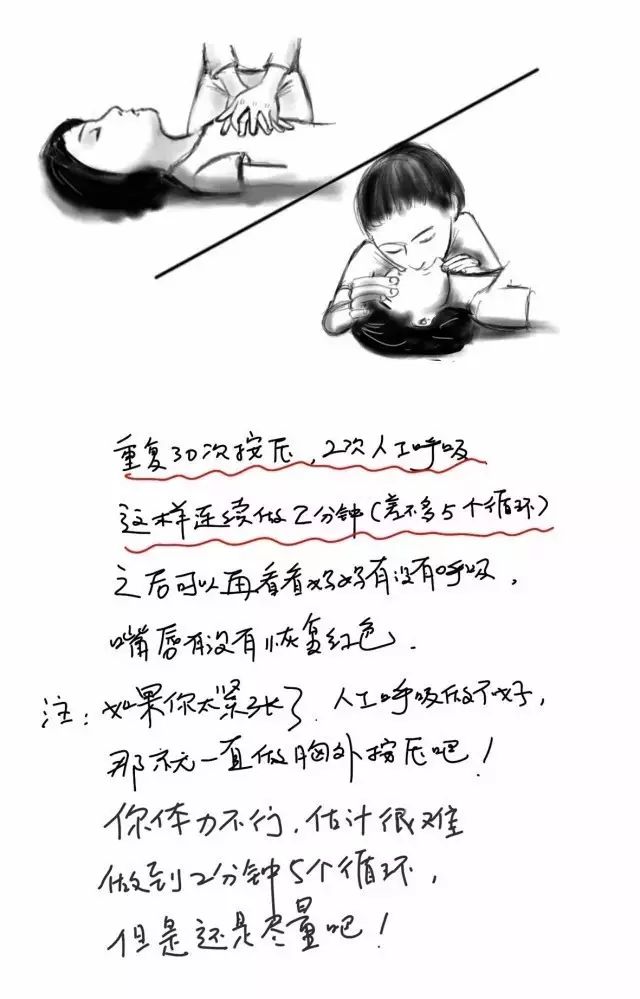 重复30次按压，2次人工呼吸
这样连续做2分钟（差不多5个循环）
之后可以再看看妈妈有没有呼吸，
嘴唇有没有恢复红色.
注：如果你太紧张了.人工呼吸做不好，
那就一直做胸外按压吧！
你体力不行，估计很难
做到2分钟5个循环，
但是还是尽量吧！